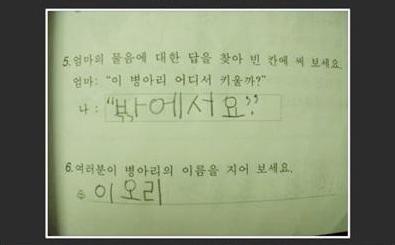 5.엄마의 물음에 대한 답을 찾아 빈 칸에 써 보세요.
엄마: "이 병아리 어디서 키울까?"
나 : "밖에서요?"
6.여러분이 병아리의 이름을 지어 보세요.
이오리